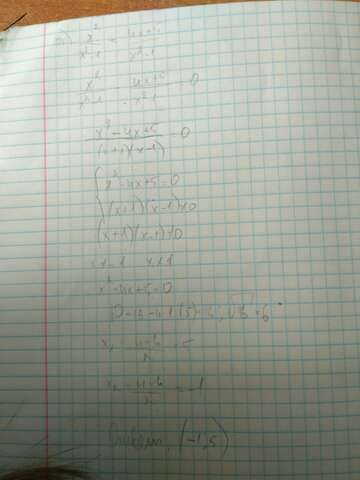 x² / x²-1 = 4x+5 / x²-1
x² / x²-1 - 4x+5 / x²-1 = 0
x²-4x+5 / (x+1)(x-1) = 0
x²-4x+5=0
(x+1)(x-1)≠0
(x+1)(x-1)≠0
x≠-1 x≠1
x²-4x+5=0
x₁ = 4+6 / 2 = 5
x₂ = 4-6 / 2 = -1
(-1;5)